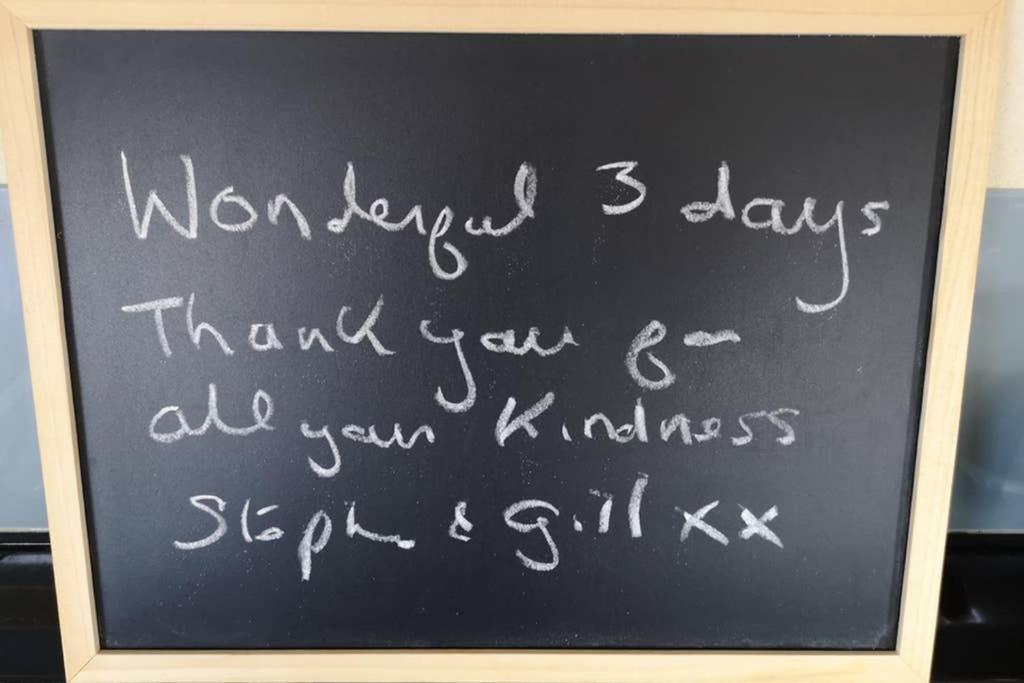 Wonderful 3 days
Thank you for
all your Kindness
Steph & Gill xx